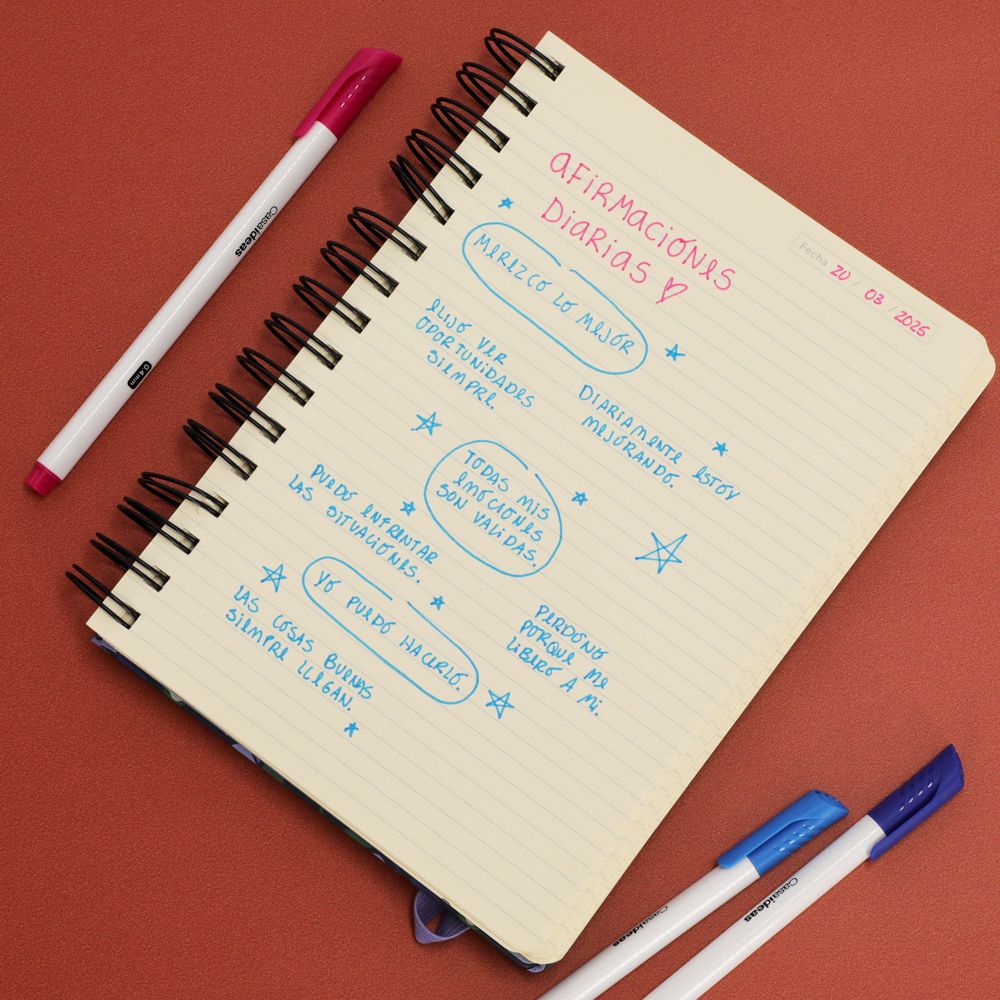 AFIRMACIONES
DIARIAS
Fecha 20 / 03 / 2025
MEREZCO LO MEJOR
ELIJO VER
OPORTUNIDADES
SIEMPRE.
DIARIAMENTE ESTOY
MEJORANDO.
TODAS MIS
EMOCIONES
SON VALIDAS.
PUEDO ENFRENTAR
LAS SITUACIONES.
YO PUEDO HACERLO.
LAS COSAS BUENAS
SIEMPRE LLEGAN.
PERDONO
PORQUE ME
LIBERO A MI.
Casaideas
0.4 mm
Casaideas
Casaideas